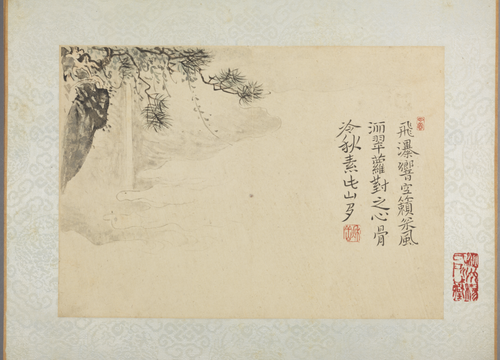 飛瀑響空籟風
洒翠蘿對之心骨
冷秋素此山多